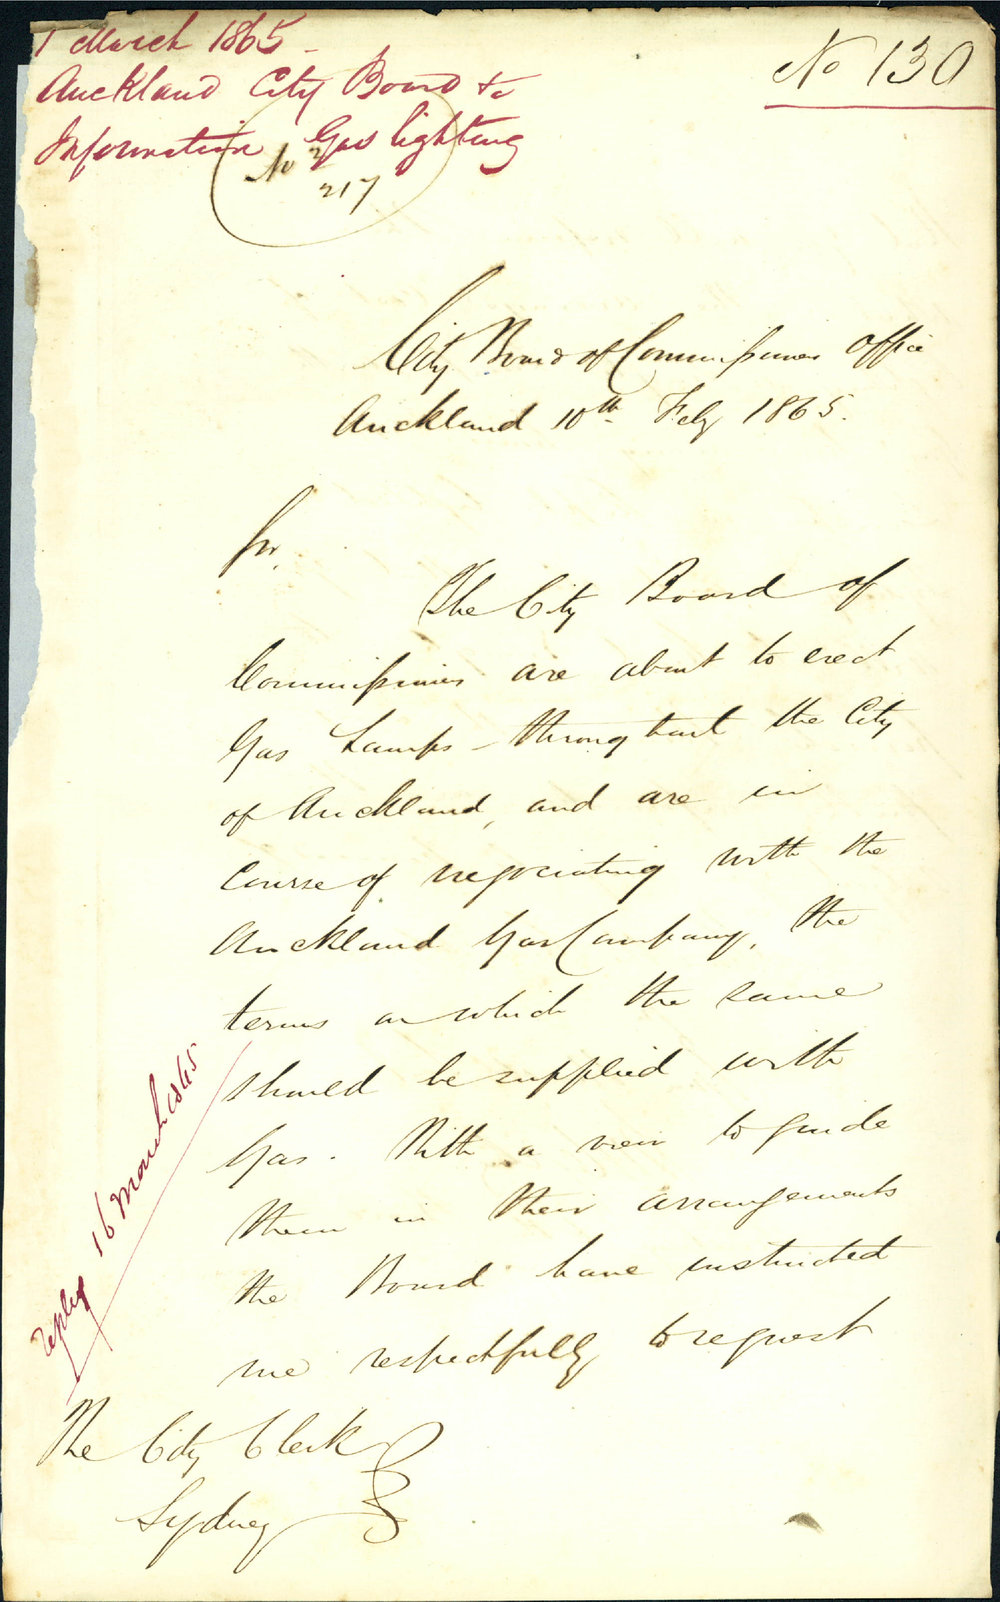 1 March 1865
Auckland City Board to
Information Gas lighting
No 2
217
No 130
City Board of Commissioners Office
Auckland 10th Feby 1865.
Sir,
The City Board of
Commissioners are about to erect
Gas Lamps throughout the City
of Auckland, and are in
course of negociating with the
Auckland Gas Company, the
terms on which the same
should be supplied with
Gas. With a view to guide
them in their arrangements
the Board have instructed
me respectfully to request
reply 16 March 1865
The City Clerk
Sydney